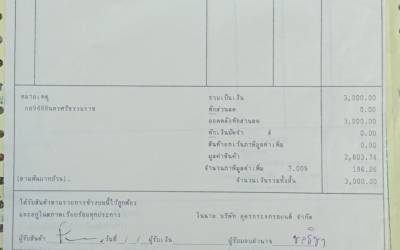 หมายเหตุ รวมเป็นเงิน 3,000.00
กอ9488นครศรีธรรมราช หักส่วนลด 0.00
ยอดหลังหักส่วนลด 3,000.00
หักเงินมัดจำ # 0.00
สินค้ายกเว้นภาษีมูลค่าเพิ่ม 0.00
มูลค่าสินค้า 2,803.74
จำนวนภาษีมูลค่าเพิ่ม 7.00% 196.26
(สามพันบาทถ้วน) จำนวนเงินรวมทั้งสิ้น 3,000.00
ได้รับสินค้าตามรายการข้างบนนี้ไว้ถูกต้อง
และอยู่ในสภาพเรียบร้อยทุกประการ ในนาม บริษัท จำกัด
ผู้รับสินค้า วันที่ / / ผู้รับเงิน ผู้รับมอบอำนาจ